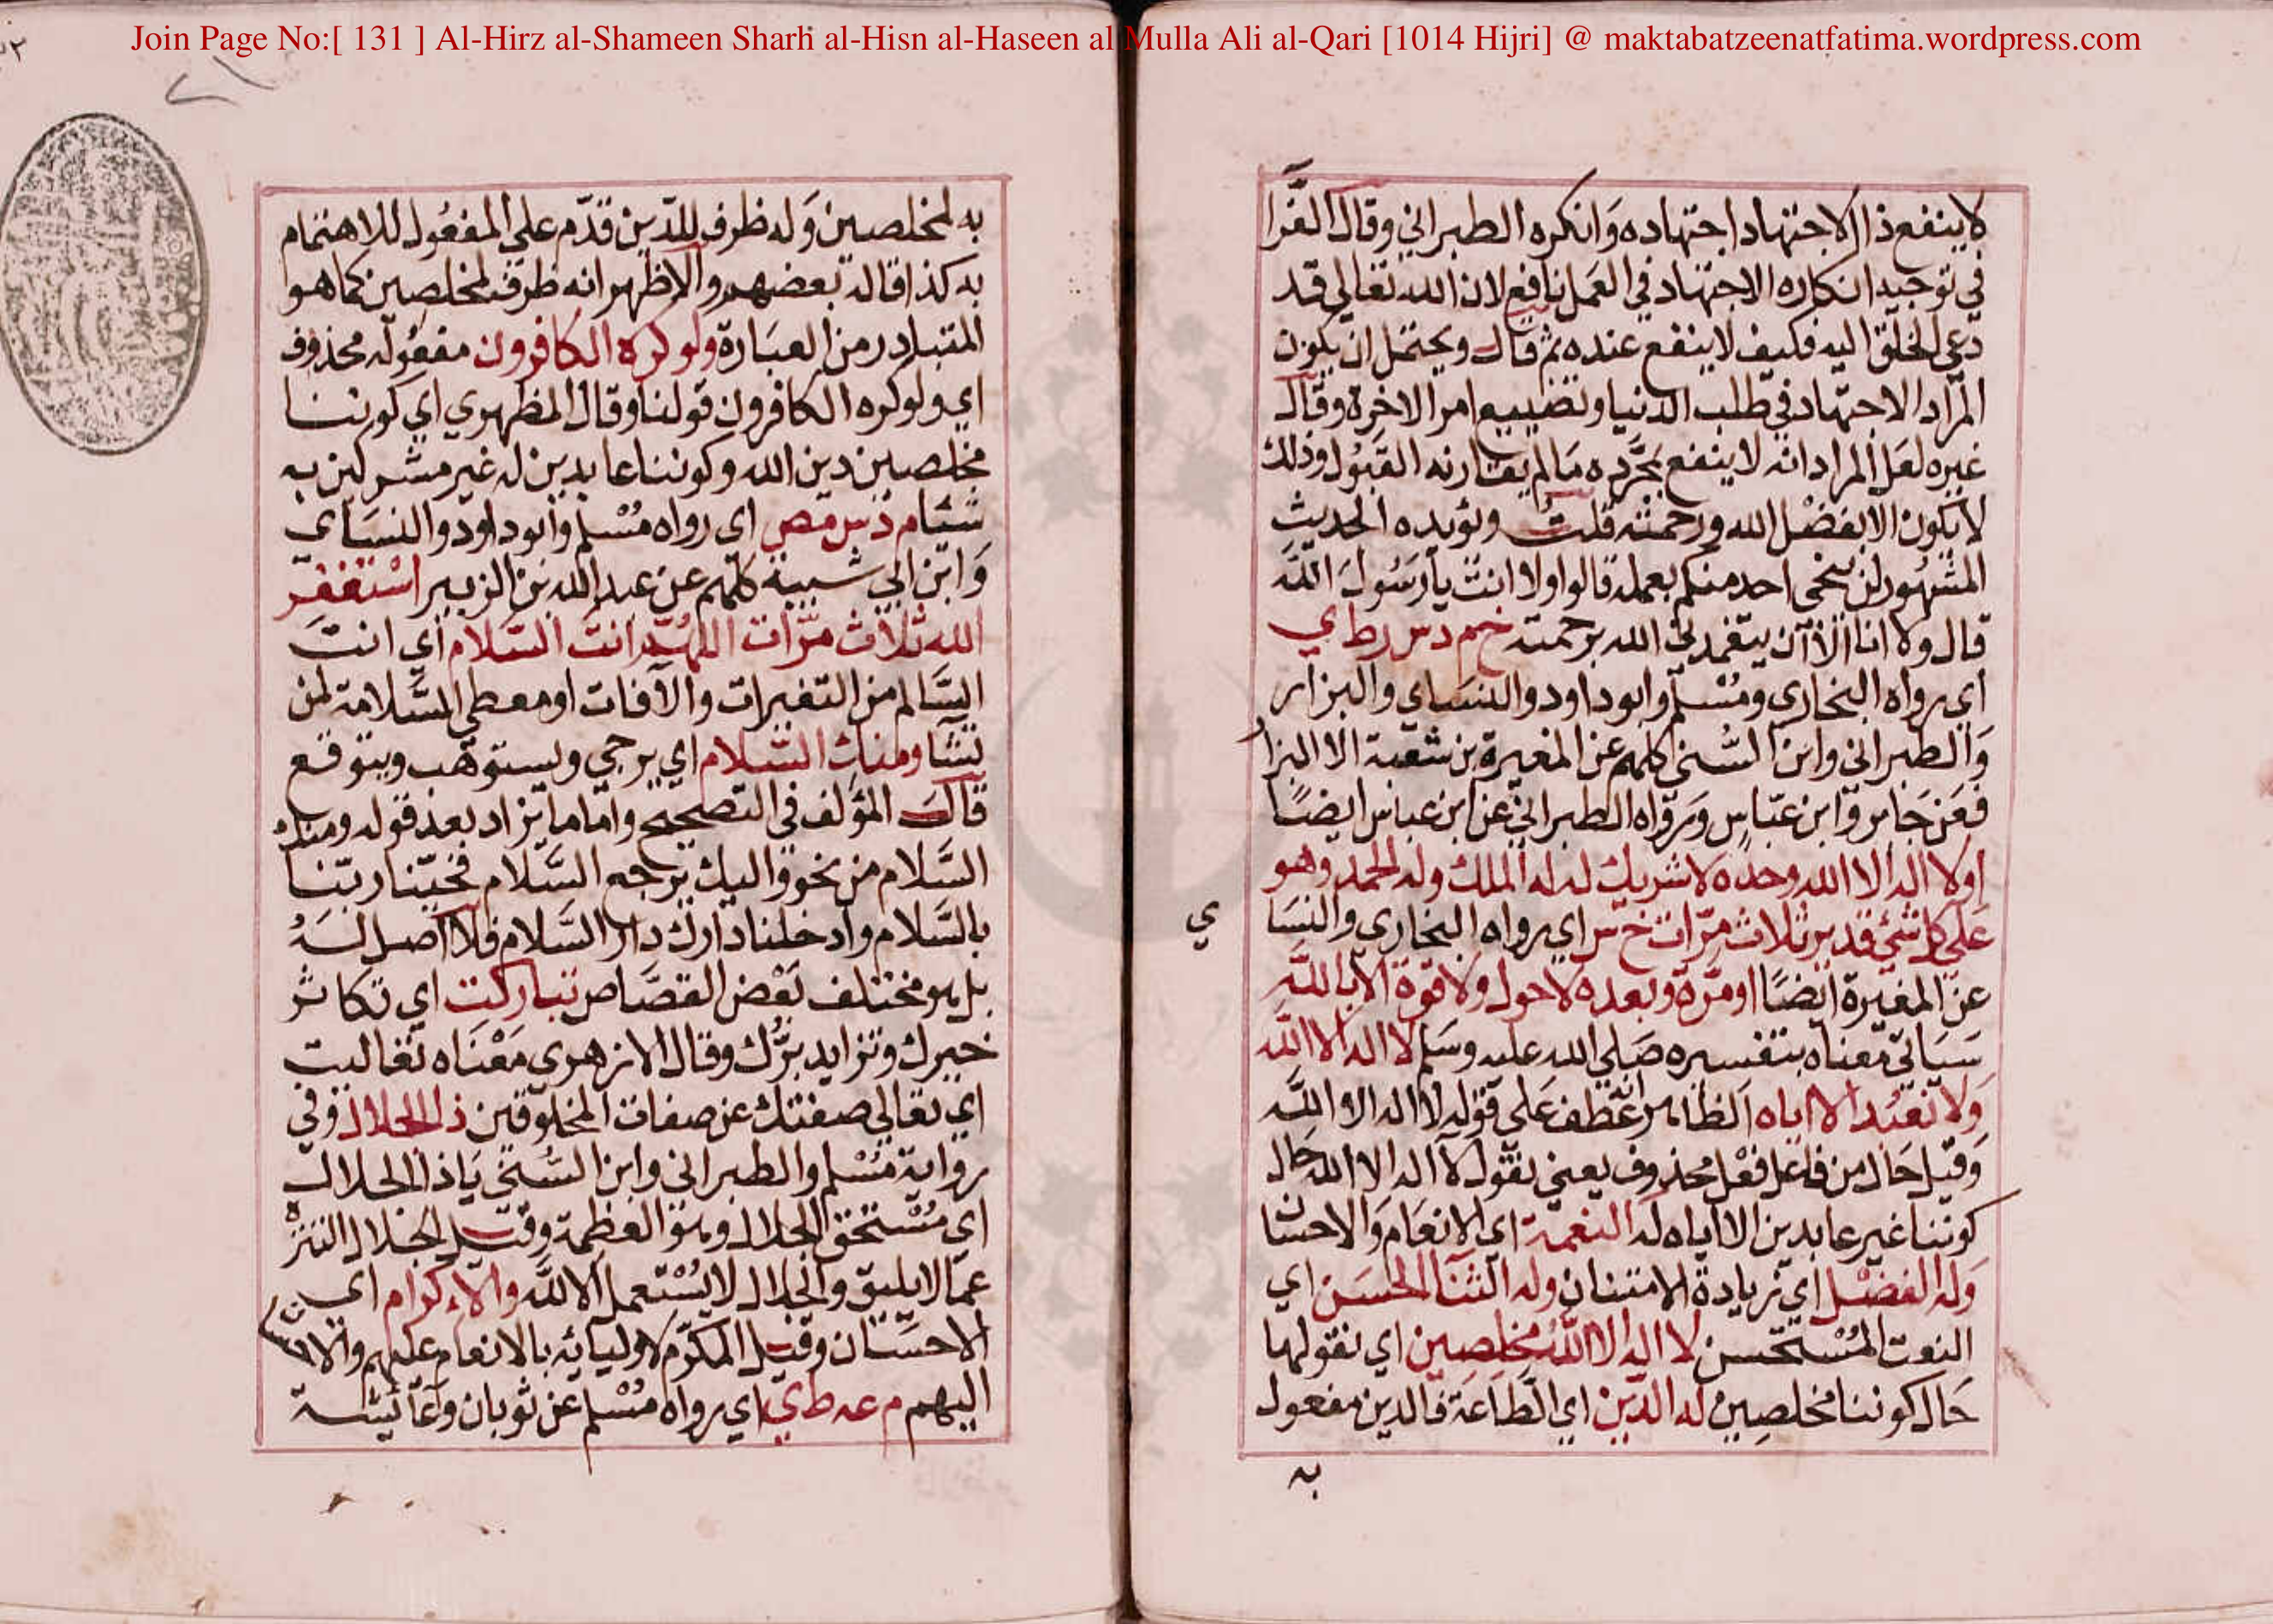 Join Page No:[ 131 ] Al-Hirz al-Shameen Sharh al-Hisn al-Haseen al Mulla Ali al-Qari [1014 Hijri] @ maktabatzeenatfatima.wordpress.com
لا ينفع ذا الاجتهاد اجتهاده وانكره الطبراني وقال الفرا
في توجيه انكاره الاجتهاد في العمل نافع لان الله تعالى قد
دعى الخلق اليه فكيف لا ينفع عنده ثم قال ويحتمل ان يكون
المراد الاجتهاد في طلب الدنيا وتضييع امر الاخرة وقال
غيره لعل المراد انه لا ينفع بمجرده ما لم يقارنه القبول وذلك
لا يكون الا بفضل الله ورحمته قلت ويؤيده الحديث
المشهور لن ينجي احد منكم بعمله قالوا ولا انت يا رسول الله
قال ولا انا الا ان يتغمدني الله برحمته خ م د س ر ط ي
اي رواه البخاري ومسلم وابو داود والنساي والبزار
والطبراني وابن السني كلهم عن المغيرة بن شعبة الا البزار
فعن جابر وابن عباس ورواه الطبراني عن ابن عباس ايضا
او لا اله الا الله وحده لا شريك له له الملك وله الحمد وهو
على كل شئ قدير ثلاث مرات خ س اي رواه البخاري والنسا
ي
عن المغيرة ايضا او مرة وبعده لا حول ولا قوة الا بالله
سياتي معناه بتفسيره صلى الله عليه وسلم لا اله الا الله
ولا نعبد الا اياه الظاهر انه عطف على قوله لا اله الا الله
وقيل حال من فاعل فعل محذوف يعني نقول لا اله الا الله حال
كوننا غير عابدين الا اياه له النعمة اي الانعام والاحسان
وله الفضل اي زيادة الامتنان وله الثنا الحسن اي
النعت المستحسن لا اله الا الله مخلصين اي نقولها
حال كوننا مخلصين له الدين اي الطاعة فالدين مفعول
به
به لمخلصين وله ظرف للدين قدم على المفعول للاهتمام
به كذا قاله بعضهم والاظهر انه ظرف لمخلصين كما هو
المتبادر من العبارة ولو كره الكافرون مفعوله محذوف
اي ولو كره الكافرون قولنا وقال المظهري اي كوننا
مخلصين دين الله وكوننا عابدين له غير مشركين به
شيئا م د س مص اي رواه مسلم وابو داود والنساي
وابن ابي شيبة كلهم عن عبد الله بن الزبير استغفر
الله ثلاث مرات اللهم انت السلام اي انت
السالم من التغيرات والآفات او معطي السلامة لمن
تشا ومنك السلام اي يرجى ويستوهب ويتوقع
قال المؤلف في التصحيح واما ما يزاد بعد قوله ومنك
السلام من نحو واليك يرجع السلام فحينا ربنا
بالسلام وادخلنا دارك دار السلام فلا اصل له
بل هو مختلف بعض القصاص تباركت اي تكاثر
خيرك وتزايد برك وقال الازهري معناه تعاليت
اي تعالى صفتك عن صفات المخلوقين ذا الجلال وفي
رواية مسلم والطبراني وابن السني يا ذا الجلال
اي مستحق الجلال وهو العظمة وقيل الجلال التنزه
عما لا يليق والجلال لا يستعمل الا لله والاكرام اي
الاحسان وقيل المكرم لاوليائه بالانعام عليهم والا
اليهم م عه ط ي اي رواه مسلم عن ثوبان وعائشة